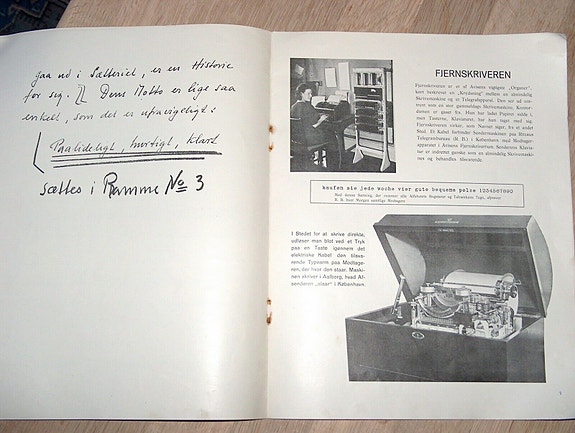 gaa ud i Sætteriet, er en Historie
for sig. Dens Motto er lige saa
enkelt, som det er ufravigeligt:
Paalideligt, hurtigt, klart
Sættes i Ramme No 3
FJERNSKRIVEREN
Fjernskriveren er et af Avisens vigtigste „Organer",
kort beskrevet en „Krydsning" mellem en almindelig
Skrivemaskine og et Telegrafapparat. Den ser ud om-
trent som en stor gammeldags Skrivemaskine, Kontor-
damen er parat. Hun har ladet Papiret sidde i,
men Tasterne, Klaviaturet, har hun taget med sig.
Fjernskriveren virker, som Navnet siger, fra et andet
Sted. Et Kabel forbinder Sendermaskinen paa Ritzaus
Telegrambureau (R. B.) i København med Modtager-
apparatet i Avisens Fjernskriverrum. Senderens Klavia-
tur er indrettet ganske som en almindelig Skrivemaskines
og behandles tilsvarende.
kaufen sie jede woche vier gute bequeme pelze 1234567890
Med denne Sætning, der rummer alle Alfabetets Bogstaver og Talrækkens Tegn, afprøver
R. B. hver Morgen samtlige Modtagere
I Stedet for at skrive direkte,
udløser man blot ved et Tryk
paa en Taste igennem det
elektriske Kabel den tilsva-
rende Typearm paa Modtage-
ren, der hvor den staar. Maski-
nen skriver i Aalborg, hvad Af-
senderen „siger" i København.